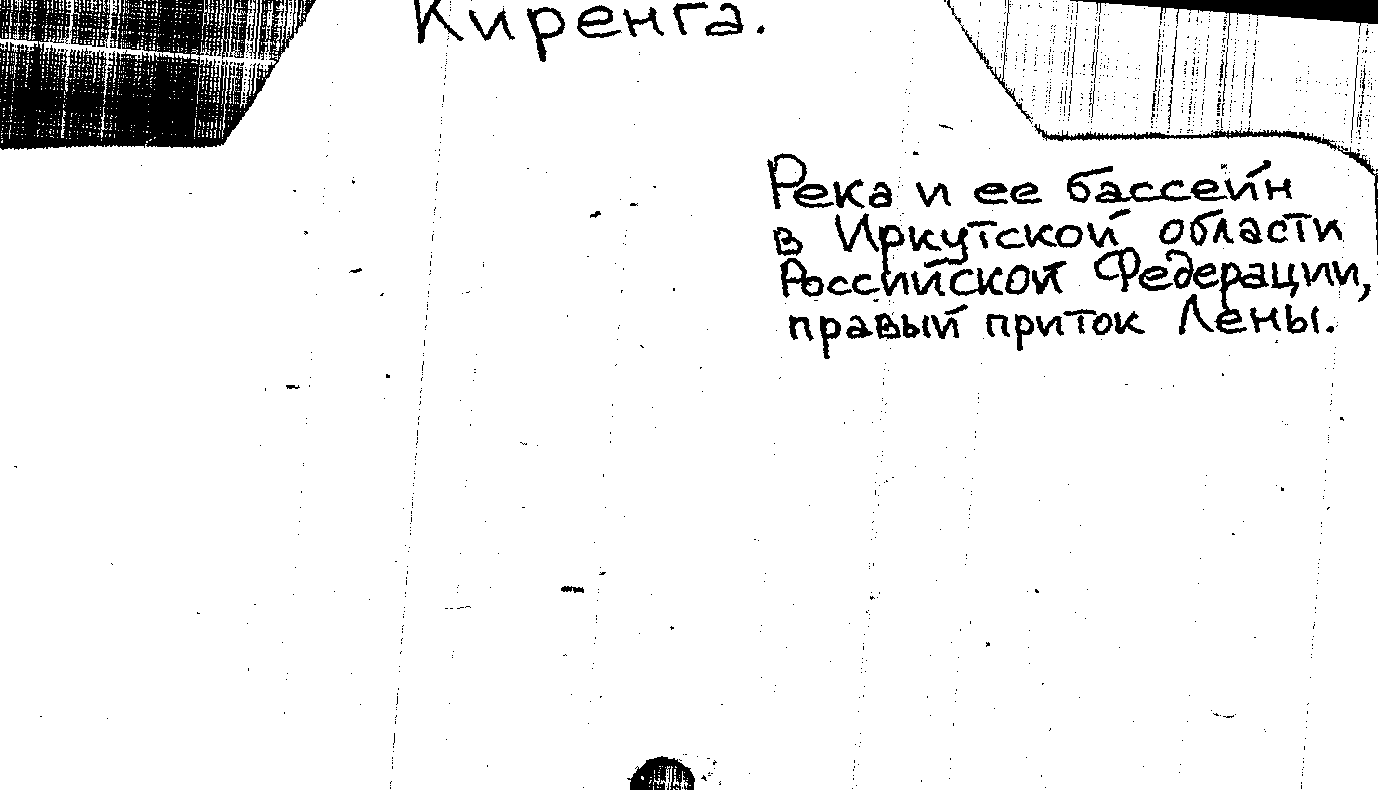 Киренга.
Река и ее бассейн
в Иркутской области
Российской Федерации,
правый приток Лены.